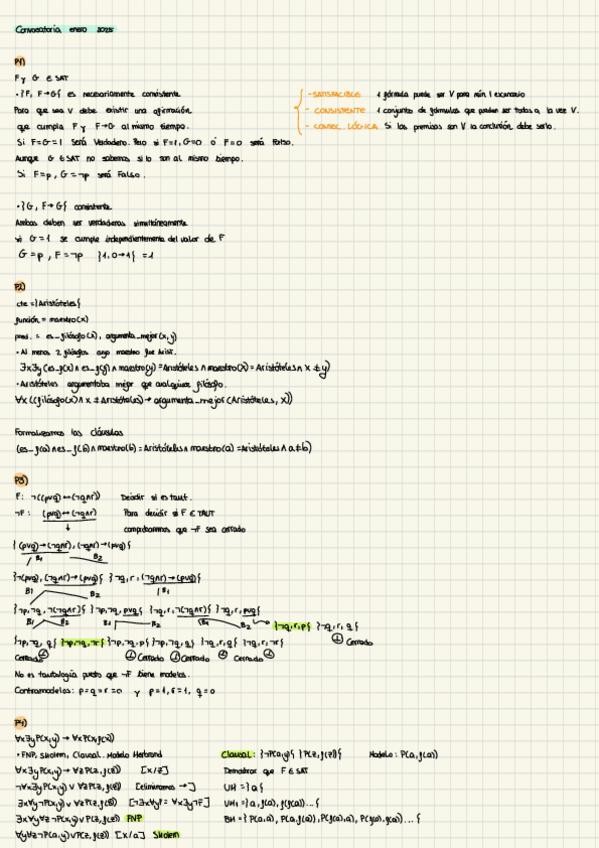 Convocatoria enero 2025
P1)
F y G ∈ SAT
• {F, F→G} es necesariamente consistente
Para que sea V debe existir una afirmación
que cumpla F y F→G al mismo tiempo.
Si F=G=1 será Verdadero. Pero si F=1, G=0 ó F=0 será Falso.
Aunque G ∈ SAT no sabemos si lo son al mismo tiempo.
Si F=p, G=¬p será Falso.
- SATISFACIBLE 1 fórmula puede ser V para mín 1 escenario
- CONSISTENTE 1 conjunto de fórmulas que puedan ser todas a la vez V.
- CONSEC. LÓGICA Si las premisas son V la conclusión debe serlo.
• {G, F→G} consistente
Ambas deben ser verdaderas simultáneamente
si G=1 se cumple independientemente del valor de F
G=p, F=¬p {1, 0→1} =1
P2)
cte = {Aristóteles}
función = maestro(x)
pred. = es_filósofo(x), argumenta_mejor(x,y)
• Al menos 2 filósofos cuyo maestro fue Arist.
∃x∃y(es_f(x) ∧ es_f(y) ∧ maestro(y) = Aristóteles ∧ maestro(x) = Aristóteles ∧ x ≠ y)
• Aristóteles argumentaba mejor que cualquier filósofo.
∀x ((filósofo(x) ∧ x ≠ Aristóteles) → argumenta_mejor(Aristóteles, x))
Formalizamos las cláusulas
(es_f(a) ∧ es_f(b) ∧ maestro(b) = Aristóteles ∧ maestro(a) = Aristóteles ∧ a≠b)
P3)
F: ¬((p∨q)↔(¬q∧r)) Decidir si es taut.
¬F: (p∨q)↔(¬q∧r) Para decidir si F ∈ TAUT
comprobaremos que ¬F sea cerrado
{(p∨q)→(¬q∧r), (¬q∧r)→(p∨q)}
B1 B2
{¬(p∨q), (¬q∧r)→(p∨q)} {¬q, r, (¬q∧r)→(p∨q)}
B1 B2 B1
{¬p,¬q,¬(¬q∧r)} {¬p,¬q, p∨q} {¬q, r, ¬(¬q∧r)} {¬q, r, p∨q}
B1 B2 B1 B2 B1 B2 {¬q, r, p} {¬q, r, q}
{¬p,¬q, q} {¬p,¬q,¬r} {¬p,¬q, p} {¬p,¬q, q} {¬q, r, q} {¬q, r, ¬r} Cerrado
Cerrado Cerrado Cerrado Cerrado Cerrado
No es tautología puesto que ¬F tiene modelos.
Contramodelos: p=q=r=0 y p=1, r=1, q=0
P4)
∀x∃yP(x,y) → ∀xP(x,f(x))
• FNP, Skolem, Clausal. Modelo Herbrand
∀x∃yP(x,y) → ∀zP(z,f(z)) [x/z]
¬∀x∃yP(x,y) ∨ ∀zP(z,f(z)) [eliminamos →]
∃x∀y¬P(x,y) ∨ ∀zP(z,f(z)) [¬∃x∀yF = ∀x∃y¬F]
∃x∀y∀z¬P(x,y) ∨ P(z,f(z)) FNP
∀y∀z¬P(a,y) ∨ P(z,f(z)) [x/a] Skolem
Clausal: {¬P(a,y) P(z,f(z))} Modelo: P(a,f(a))
Demostrar que F ∈ SAT
UH = {a}
UH1 = {a, f(a), f(f(a))...}
BH = {P(a,a), P(a,f(a)), P(f(a),a), P(f(a),f(a))...}